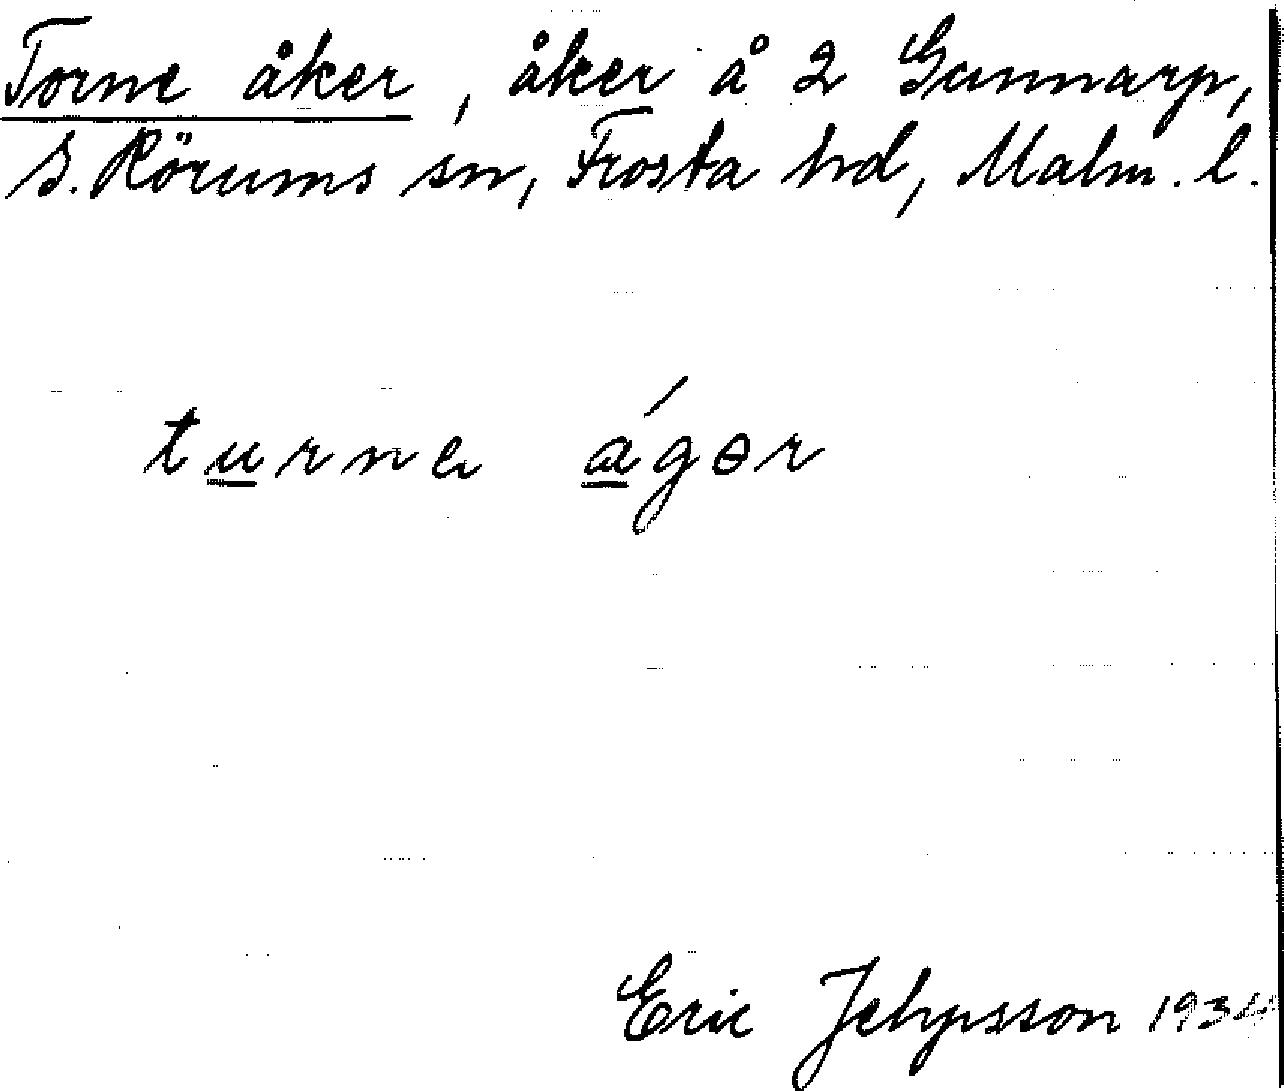 Torne åker, åker å 2 Gunnarp,
S. Rörums sn, Frosta hd, Malm. l.
turne ágɵr
Eric Jehpsson 1934